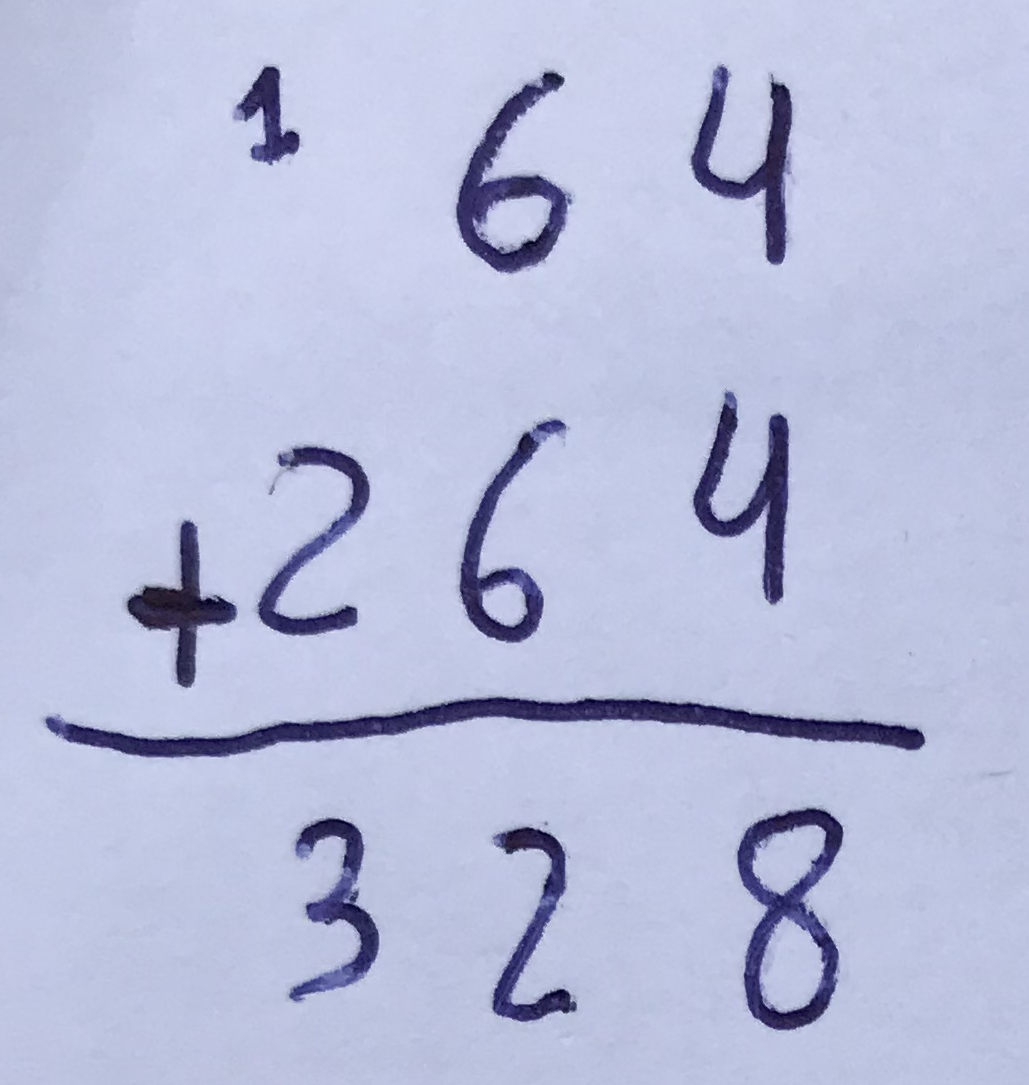 1 64
+264
328